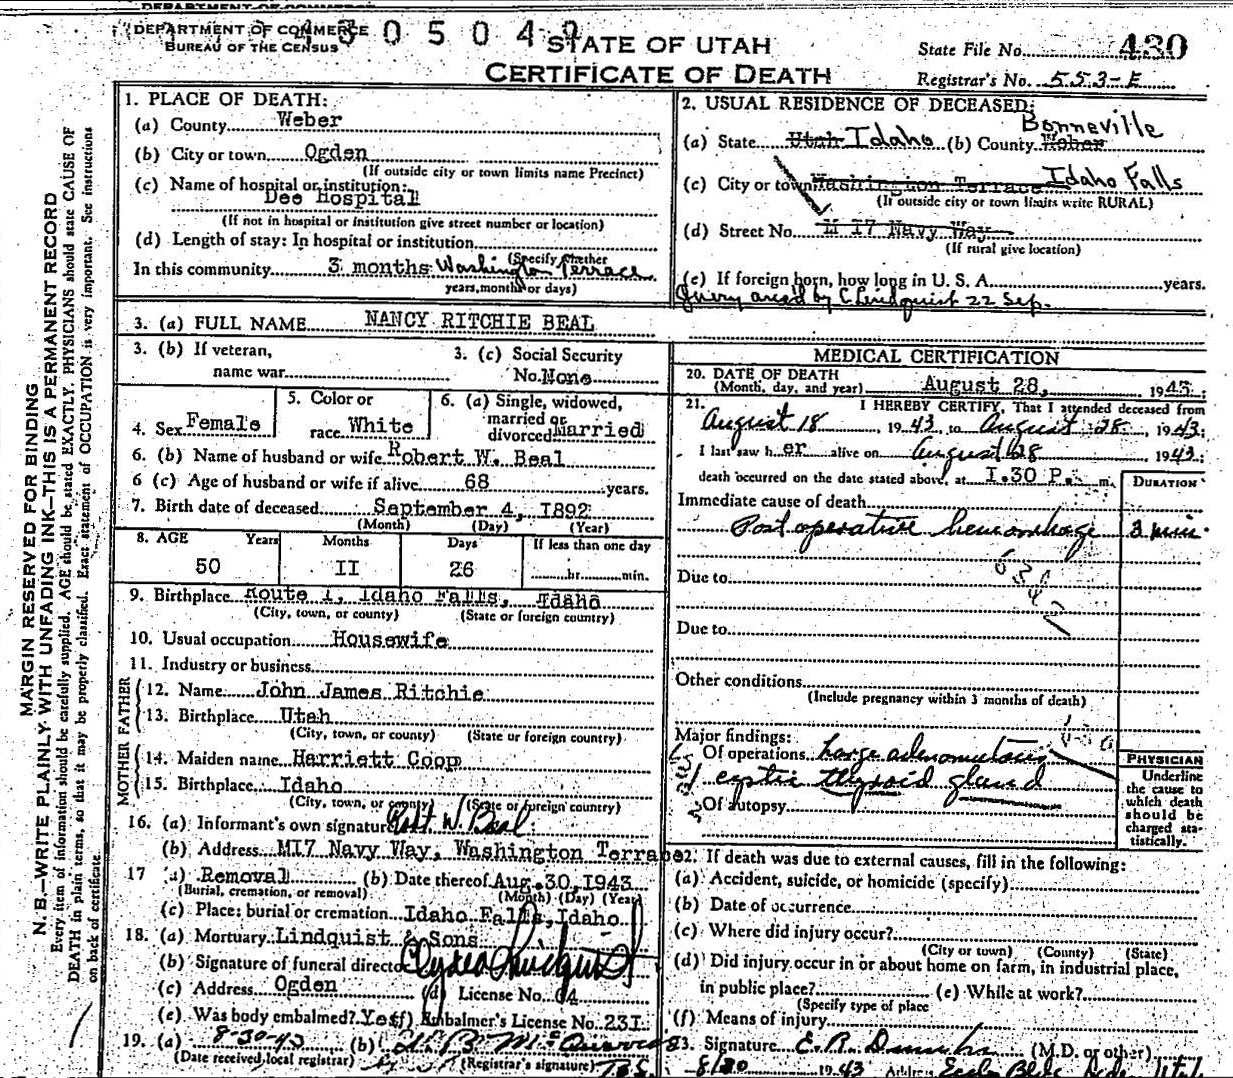 DEPARTMENT OF COMMERCE
BUREAU OF THE CENSUS
STATE OF UTAH
CERTIFICATE OF DEATH
State File No. 430
Registrar's No. 553-E
MARGIN RESERVED FOR BINDING
N. B.—WRITE PLAINLY WITH UNFADING INK—THIS IS A PERMANENT RECORD
Every item of information should be carefully supplied. AGE should be stated EXACTLY. PHYSICIANS should state CAUSE OF
DEATH in plain terms, so that it may be properly classified. Exact statement of OCCUPATION is very important. See instructions
on back of certificate.
1. PLACE OF DEATH:
(a) County Weber
(b) City or town Ogden
(If outside city or town limits name Precinct)
(c) Name of hospital or institution:
Dee Hospital
(If not in hospital or institution give street number or location)
(d) Length of stay: In hospital or institution
(Specify whether
In this community 3 months Washington Terrace
years, months or days)
2. USUAL RESIDENCE OF DECEASED:
Bonneville
(a) State Utah Idaho (b) County Weber
(c) City or town Washington Terrace Idaho Falls
(If outside city or town limits write RURAL)
(d) Street No. M 17 Navy Way
(If rural give location)
(e) If foreign born, how long in U. S. A. years.
Query ansd by C Lindquist 22 Sep.
3. (a) FULL NAME NANCY RITCHIE BEAL
3. (b) If veteran,
name war
3. (c) Social Security
No. None
4. Sex Female
5. Color or
race White
6. (a) Single, widowed,
married or
divorced Married
6. (b) Name of husband or wife Robert W. Beal
6 (c) Age of husband or wife if alive 68 years.
7. Birth date of deceased September 4, 1892
(Month) (Day) (Year)
8. AGE Years Months Days If less than one day
50 II 26 hr. min.
9. Birthplace Route 1, Idaho Falls, Idaho
(City, town, or county) (State or foreign country)
10. Usual occupation Housewife
11. Industry or business
FATHER
12. Name John James Ritchie
13. Birthplace Utah
(City, town, or county) (State or foreign country)
MOTHER
14. Maiden name Harriett Coop
15. Birthplace Idaho
(City, town, or county) (State or foreign country)
16. (a) Informant's own signature Robt W. Beal
(b) Address MI7 Navy Way, Washington Terrace
17 (a) Removal (b) Date thereof Aug. 30, 1943
(Burial, cremation, or removal) (Month) (Day) (Year)
(c) Place: burial or cremation Idaho Falls, Idaho
18. (a) Mortuary Lindquist & Sons
(b) Signature of funeral director
(c) Address Ogden (d) License No. 64
(e) Was body embalmed? Yes (f) Embalmer's License No. 23I
19. (a) 8-30-43 (b)
(Date received local registrar) (Registrar's signature)
MEDICAL CERTIFICATION
20. DATE OF DEATH
(Month, day, and year) August 28, 1943
21. I HEREBY CERTIFY, That I attended deceased from
August 18, 1943, to August 28, 1943;
I last saw h er alive on August 28 1943;
death occurred on the date stated above, at I.30 P. m.
DURATION
Immediate cause of death
Post operative hemorrhage 3 min.
Due to
Due to
Other conditions
(Include pregnancy within 3 months of death)
Major findings:
Of operations Large adenomatous
cystic thyroid gland
Of autopsy
PHYSICIAN
Underline
the cause to
which death
should be
charged sta-
tistically.
22. If death was due to external causes, fill in the following:
(a) Accident, suicide, or homicide (specify)
(b) Date of occurrence
(c) Where did injury occur?
(City or town) (County) (State)
(d) Did injury occur in or about home on farm, in industrial place,
in public place? (e) While at work?
(Specify type of place
(f) Means of injury
23. Signature E. R. (M.D. or other)
8/30 1943 Address Eccles Bldg